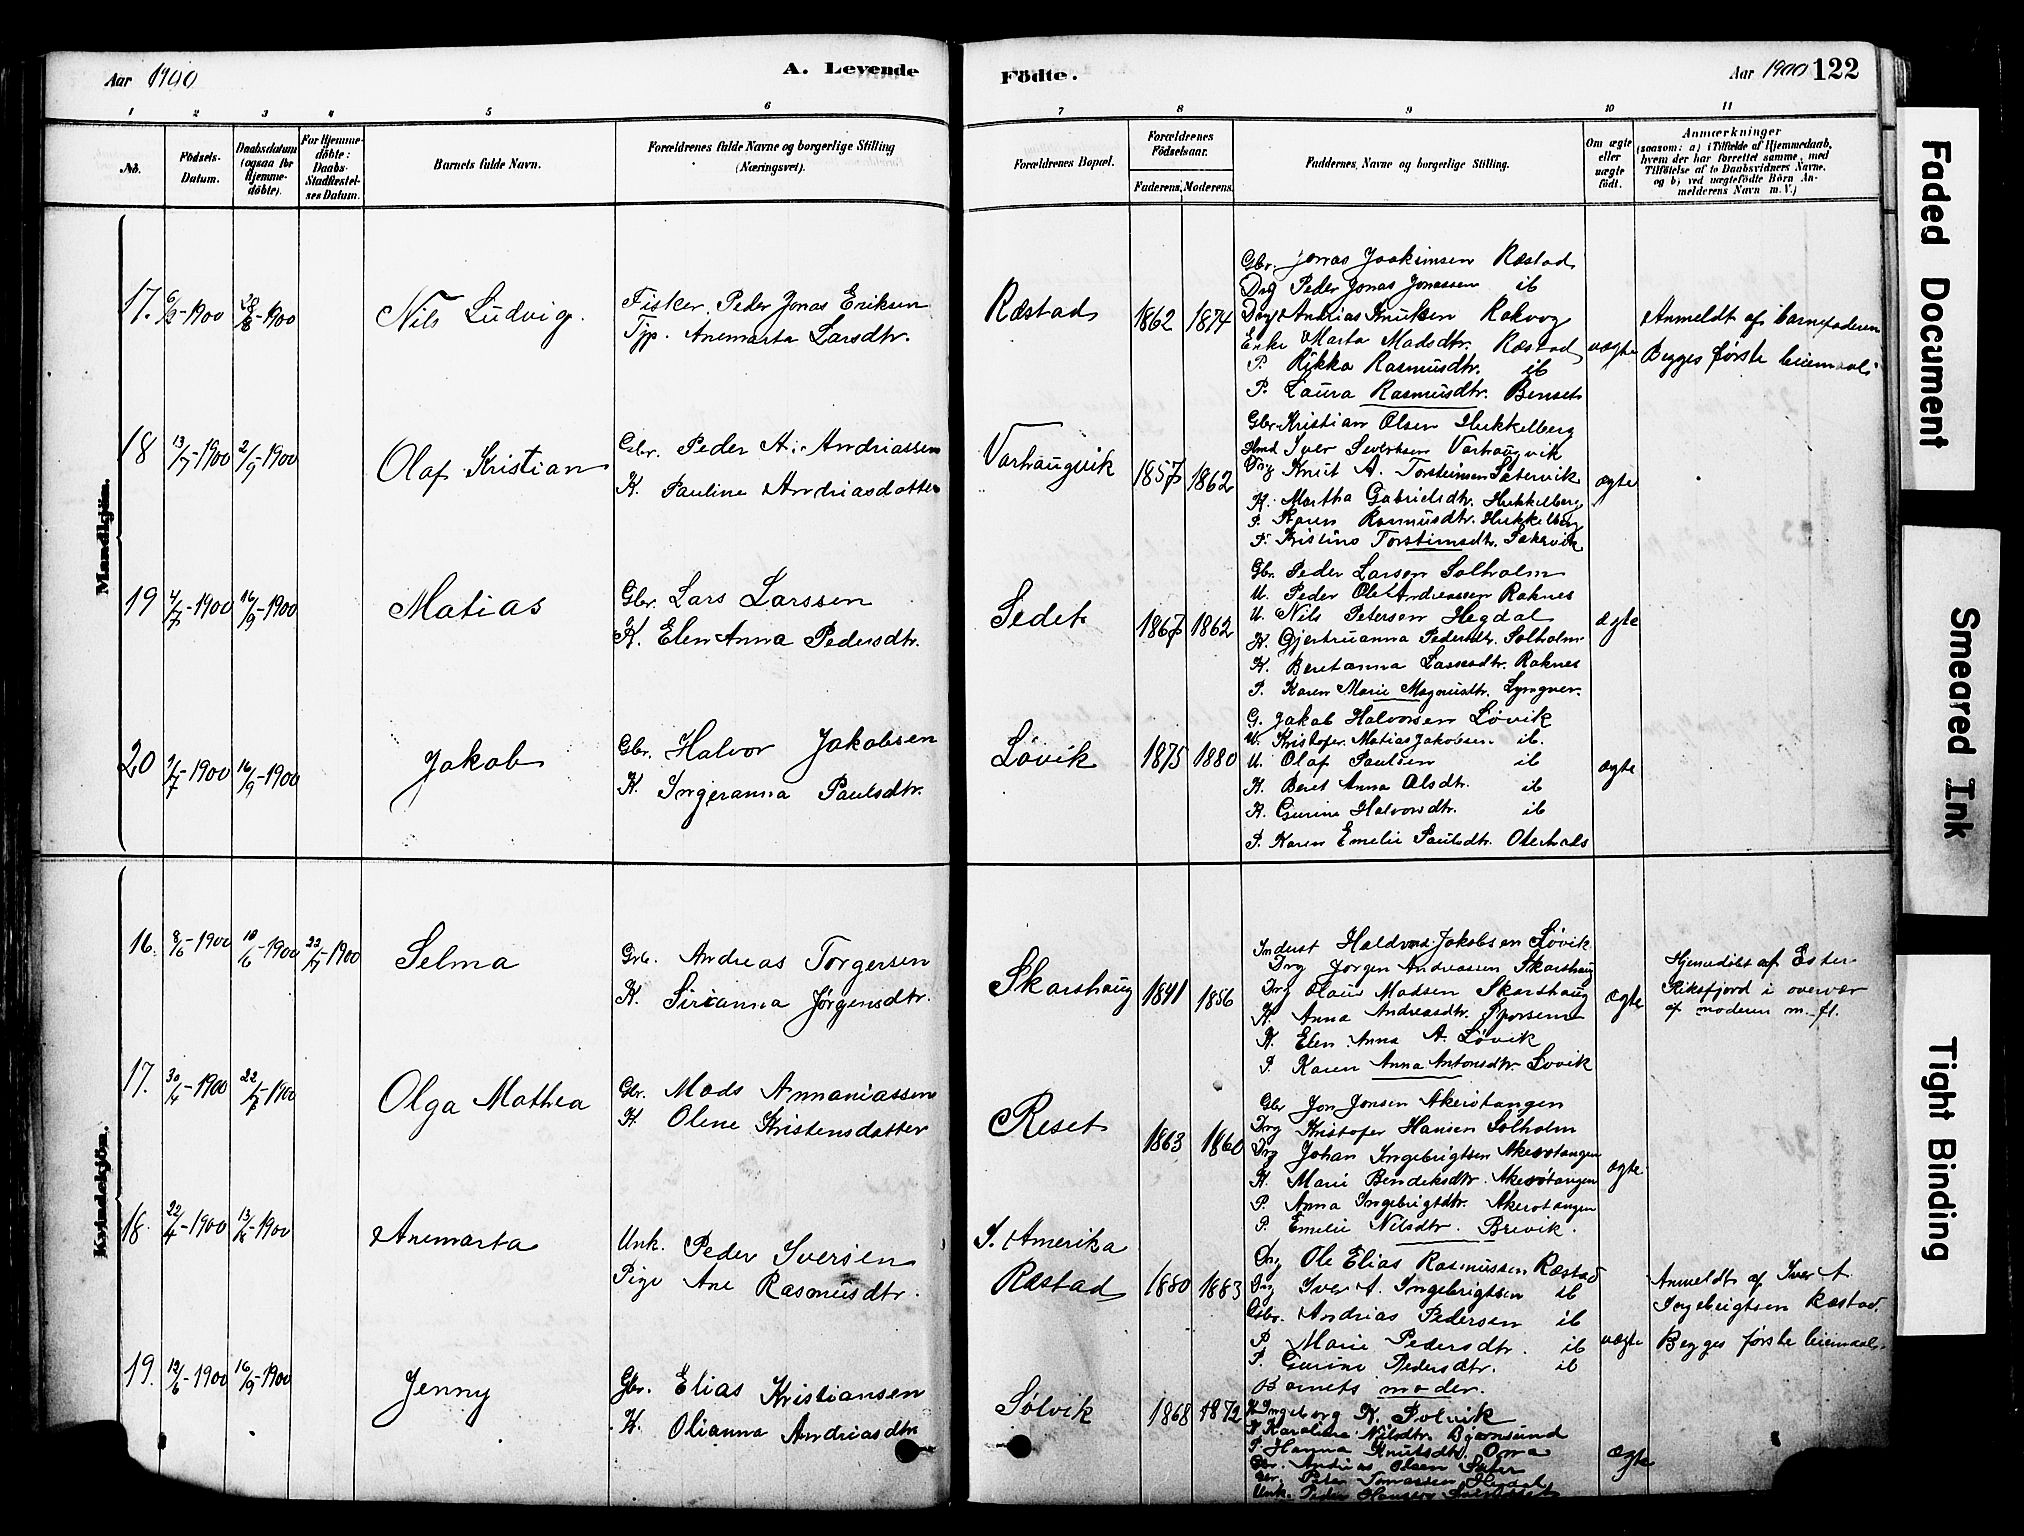 Aar 1900
A. Levende
Födte.
Aar 1900 122
1 2 3 4 5 6 7 8 9 10 11
No.
Födsels-
Datum.
Daabsdatum
(ogsaa for
Hjemme-
döbte).
For Hjemme-
döbte:
Daabs-
Stadfæstel-
ses Datum.
Barnets fulde Navn.
Forældrenes fulde Navne og borgerlige Stilling
(Næringsvei).
Forældrenes Bopæl.
Forældrenes
Födselsaar.
Faderens. Moderens.
Faddernes, Navne og borgerlige Stilling.
Om ægte
eller
uægte
födt.
Anmærkninger
(saasom: a) i Tilfælde af Hjemmedaab,
hvem der har forrettet samme, med
Tilföielse af to Daabsvidners Navne,
og b) ved uægtefödte Börn An-
melderens Navn m. V.)
Mandkjön.
17. 6/2-1900 28/8-1900
Nils Ludvig.
Fisker. Peder Jonas Eriksen
Tjp. Anemarta Larsdtr.
Ræstad
1862 1874
Gbr. Jonas Joakimsen Ræstad
Drg Peder Jonas Jonassen ib
Drg Andrias Knutsen Rakvog
Enke Marta Madsdtr. Ræstad
P. Rikka Rasmusdtr. ib
P. Laura Rasmusdtr. Benset
uægte
Anmeldt af barnefaderen
Begges første leiermaal
18 13/7-1900 2/9-1900
Olaf Kristian
Gbr. Peder A. Andriassen
K. Pauline Andriasdotter
Varhaugvik
1857 1862
Gbr. Kristian Olsen Hukkelberg
Iver Sivertsen Varhaugvik
Drg Knut A. Torsteinsen Sætervik
K. Martha Gabrielsdtr. Hukkelberg
P. Karen Rasmusdtr. Hukkelberg
P. Kristine Torsteinsdtr. Sætervik
ægte
19 4/7-1900 16/9-1900
Matias
Gbr. Lars Larssen
K. Elen Anna Pedersdtr.
Sedet
1867 1862
Gbr. Peder Larsen Solholm
U. Peder Ole Andreassen Raknes
U. Nils Petersen Hegdal
K. Gjertruanna Pedersdtr. Solholm
K. Beretanna Larsesdtr. Raknes
P. Karen Marie Magnusdtr. Lyngver.
ægte
20 7/7-1900 16/9-1900
Jakob
Gbr. Halvor Jakobsen
K. Ingeranna Paulsdtr.
Løvik
1875 1880
G. Jakob Halvorsen Løvik
U. Kristofer Matias Jakobsen ib.
U. Olaf Paulsen ib
K. Beret Anna Olsdtr. ib
K. Gurine Halvorsdtr. ib
P. Karen Emelie Paulsdtr. Oterhals
ægte
Kvindekjön.
16. 8/6-1900 10/6-1900 22/7-1900
Selma
Grb. Andreas Torgersen
K. Sirianna Jørgensdtr.
Skarshaug
1841 1856
Inderst Haldvard Jakobsen Løvik
Drg Jørgen Andreassen Skarshaug
Drg Olaus Madsen Skarshaug
K. Anna Andreasdtr.
K. Elen Anna A. Løvik
P. Karen Anna Antonsdtr. Løvik
ægte
Hjemedøbt af Ester
Riksfjord i overvær
af moderen m. fl.
17. 30/4-1900 22/7-1900
Olga Mathea
Gbr. Mads Annaniassen
K. Olene Kristensdatter
Reset
1863 1860
Gbr Jon Jonsen Akerøtangen
Drg Kristofer Hansen Solholm
Drg Johan Ingebrigtsen Akerøtangen
K. Marie Bendiksdtr. Akerøtangen
P. Anna Ingebrigtdtr. Akerøtangen
P. Emelie Nilsdtr. Brevik.
ægte
18. 22/4-1900 13/8-1900
Anemarta
Unk. Peder Iversen
Pige Ane Rasmusdtr.
S. Amerika
Ræstad
1880 1883
Drg Ole Elias Rasmussen Ræstad
Drg Iver A. Ingebrigtsen ib
Gbr. Andrias Pedersen ib
P. Marie Pedersdtr. ib
P. Gurine Pedersdtr. ib
Barnets moder.
uægte
Anmeldt af Iver A.
Ingebrigtsen Ræstad.
Begges første leiermaal.
19. 12/6-1900 16/9-1900
Jenny
Gbr. Elias Kristiansen
K. Olianna Andriasdtr
Sølvik
1868 1872
K. Ingeborg K. Solvik
K. Karoline Nilsdtr. Bjørnsund
P. Hanna Knutsdtr. Ona
Gbr. Andrias Olsen Sæter
Gbr. Peter Tomassen Hegdal
Unk. Peder Hansen
ægte
Faded Document
Smeared Ink
Tight Binding